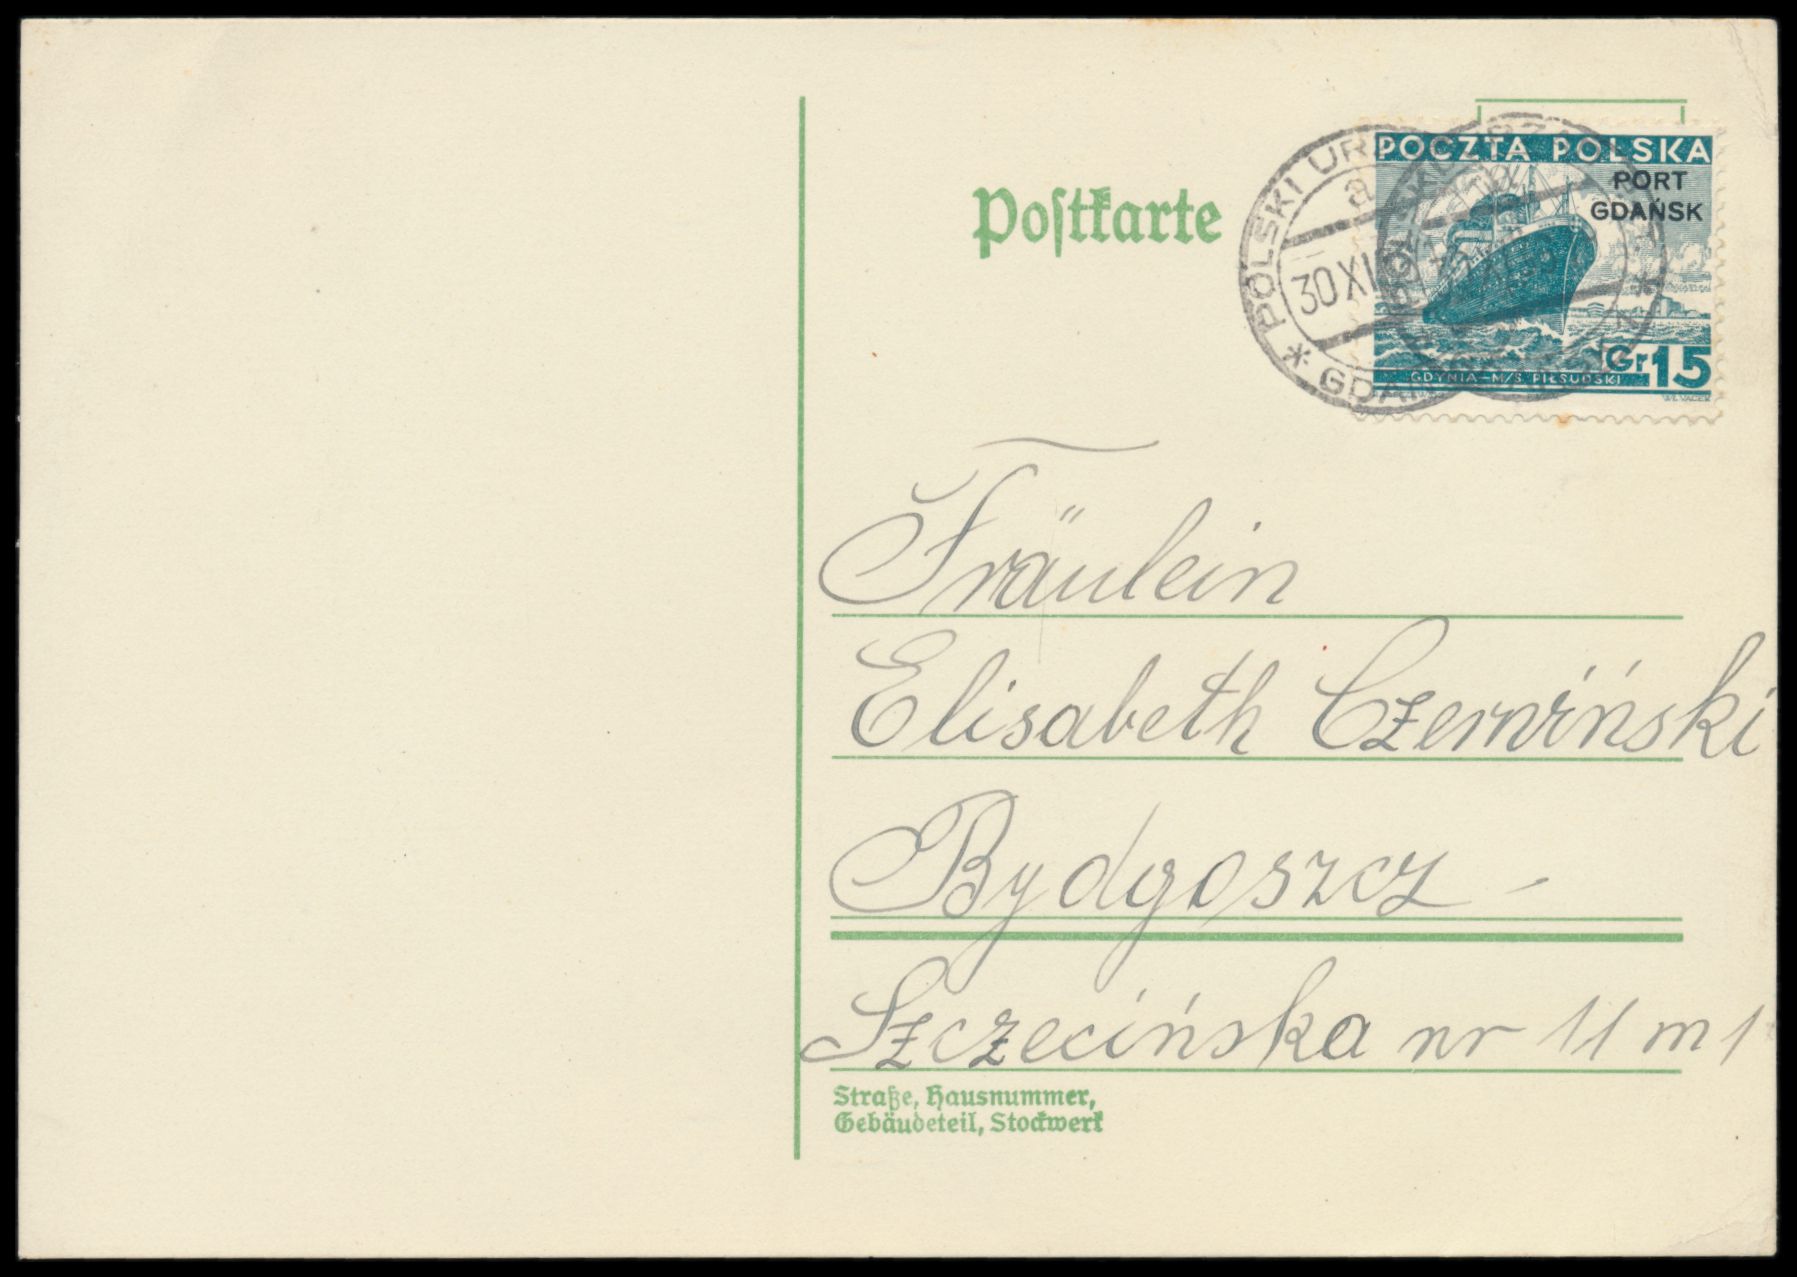 Postkarte
POCZTA POLSKA
PORT
GDAŃSK
Gr 15
GDYNIA–M/S PIŁSUDSKI
WŁ. VACEK
* POLSKI
30 XI
Fräulein
Elisabeth Czerwiński
Bydgoszcz –
Szczecińska nr 11 m 1
Straße, Hausnummer,
Gebäudeteil, Stockwerk